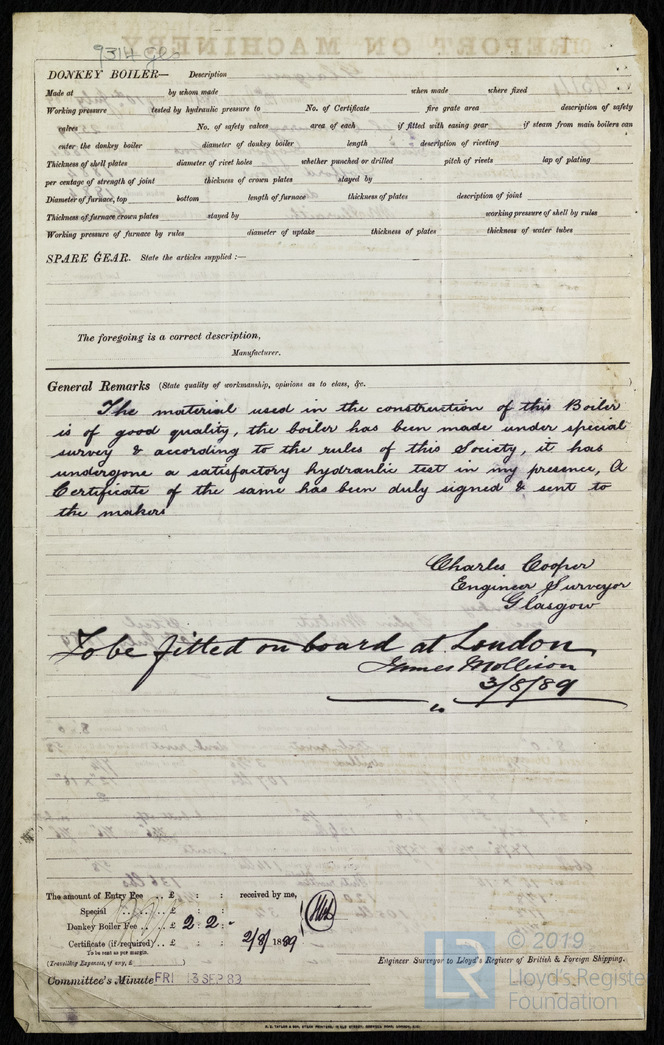 9314 gls
DONKEY BOILER— Description
Made at by whom made when made where fixed
Working pressure tested by hydraulic pressure to No. of Certificate fire grate area description of safety
valves No. of safety valves area of each if fitted with easing gear if steam from main boilers can
enter the donkey boiler diameter of donkey boiler length description of riveting
Thickness of shell plates diameter of rivet holes whether punched or drilled pitch of rivets lap of plating
per centage of strength of joint thickness of crown plates stayed by
Diameter of furnace, top bottom length of furnace thickness of plates description of joint
Thickness of furnace crown plates stayed by working pressure of shell by rules
Working pressure of furnace by rules diameter of uptake thickness of plates thickness of water tubes
SPARE GEAR. State the articles supplied :—
The foregoing is a correct description,
Manufacturer.
General Remarks (State quality of workmanship, opinions as to class, &c.
The material used in the construction of this Boiler
is of good quality, the boiler has been made under special
survey & according to the rules of this Society, it has
undergone a satisfactory hydraulic test in my presence, A
Certificate of the same has been duly signed & sent to
the makers
Charles Cooper
Engineer Surveyor
Glasgow
To be fitted on board at London
James Mollison
3/8/89
The amount of Entry Fee .. £ : : received by me,
Special .. .. £ : :
Donkey Boiler Fee .. £ 2 : 2 : -
Certificate (if required) .. £ : : 2/8/ 1889
To be sent as per margin.
(Travelling Expenses, if any, £ )
Engineer Surveyor to Lloyd's Register of British & Foreign Shipping.
Committee's Minute FRI 13 SEP 89
© 2019
Lloyd's Register
Foundation